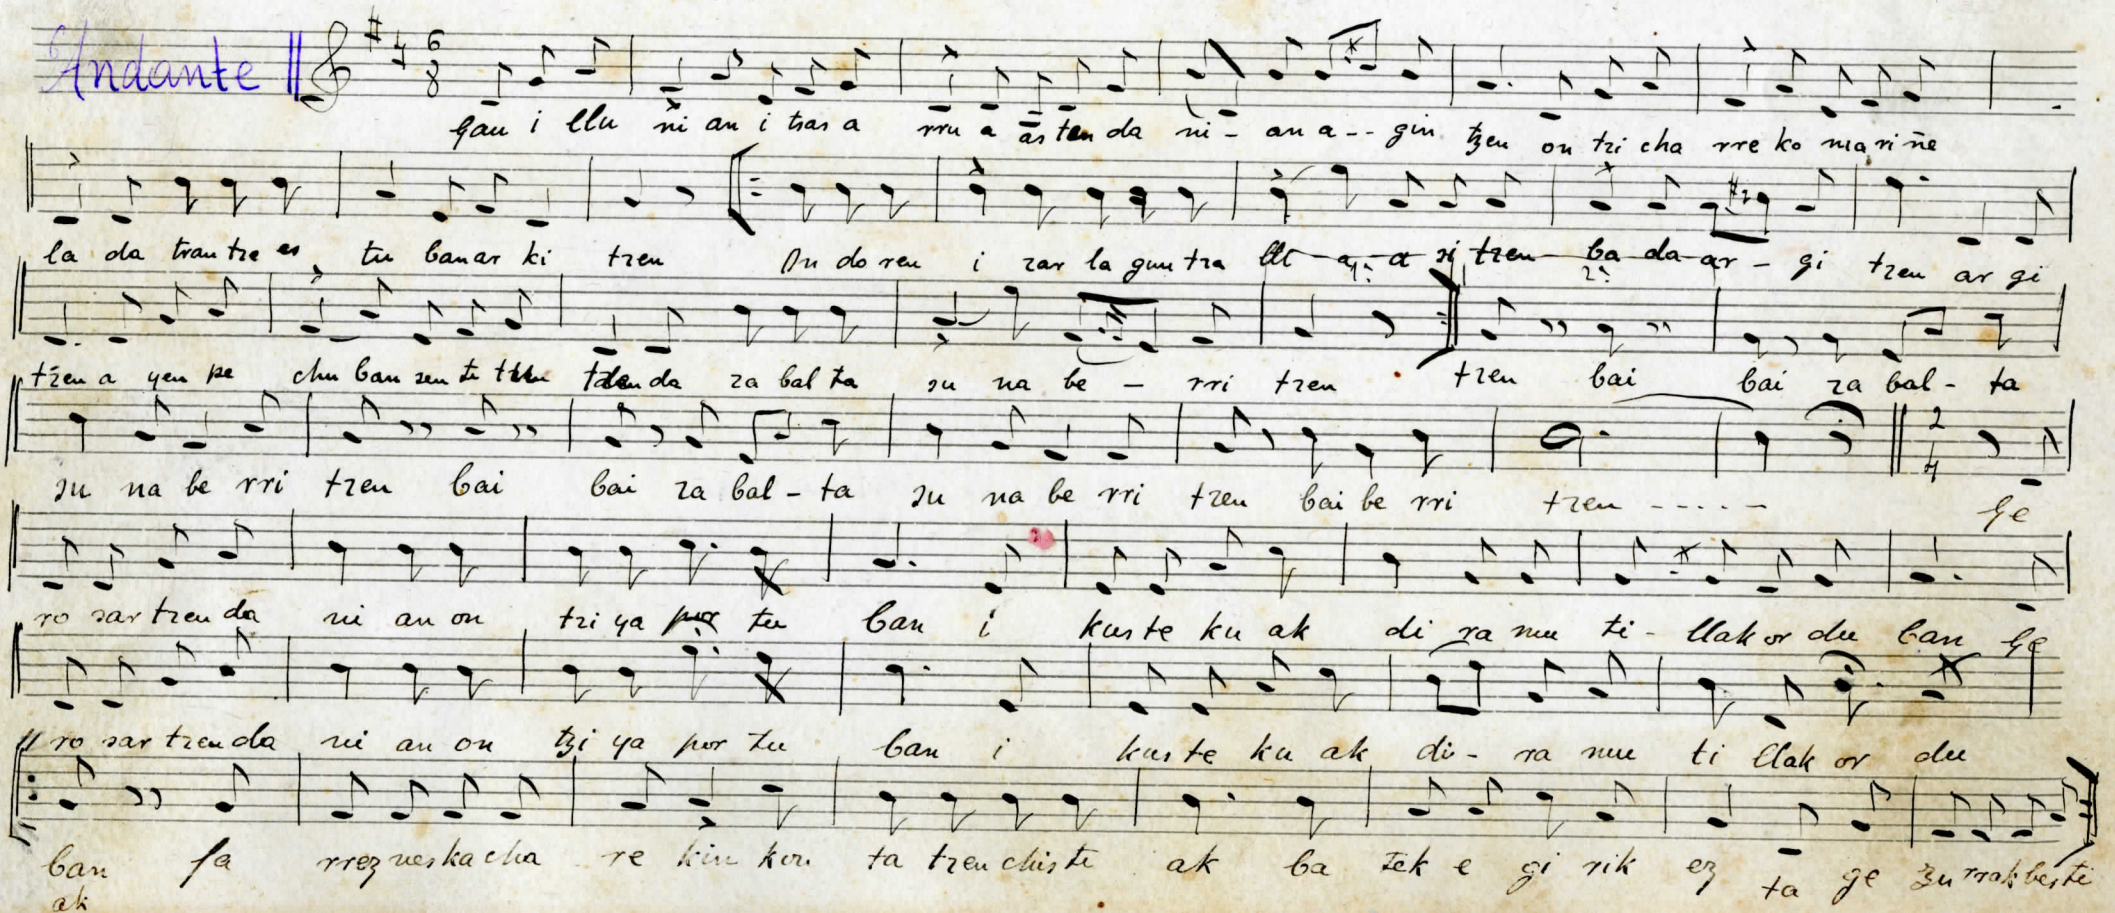 Andante
6
8
Gau i llu ni an i tsas a rru a as ten da ni - an a -- gin tzen on tzi cha rre ko ma ri ñe
la da tran tze es tu banar ki tzen On do ren i zar la gun tza a si tzen ba da ar - gi tzen ar gi
1ª: 2ª:
tzen a yen pe chu ban zen te tzen da za bal ta su na be - rri tzen tzen bai bai za bal - ta
su na be rri tzen bai bai za bal - ta su na be rri tzen bai be rri tzen ----- Ge
2
4
ro sar tzen da ni an on tzi ya por tu ban i kus te ku ak di ra mu ti - llak or du ban Ge
ro sar tzen da ni an on tzi ya por tu ban i kus te ku ak di - ra mu ti llak or du
ban fa rrez nes ka cha re kin kon ta tzen chis te ak ba tek e gi rik ez ta ge zu rrak bes te
ak